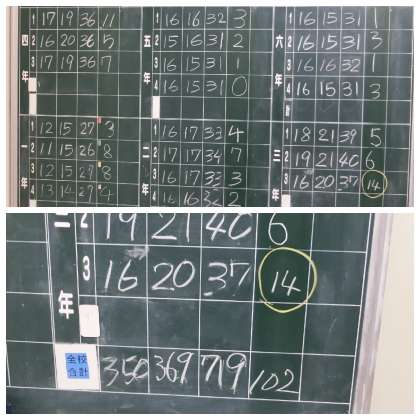 四年
1 17 19 36 11
2 16 20 36 5
3 17 19 36 7
五年
1 16 16 32 3
2 15 16 31 2
3 16 15 31 1
4 16 15 31 0
六年
1 16 15 31 1
2 16 15 31 3
3 16 16 32 1
4 16 15 31 3
計
一年
1 12 15 27 3
2 11 15 26 8
3 12 15 27 8
4 13 14 27 4
二年
1 16 17 33 4
2 17 17 34 7
3 16 17 33 3
4 16 16 32 2
三年
1 18 21 39 5
2 19 21 40 6
3 16 20 37 14
三年
2 19 21 40 6
3 16 20 37 14
全校合計 350 369 719 102